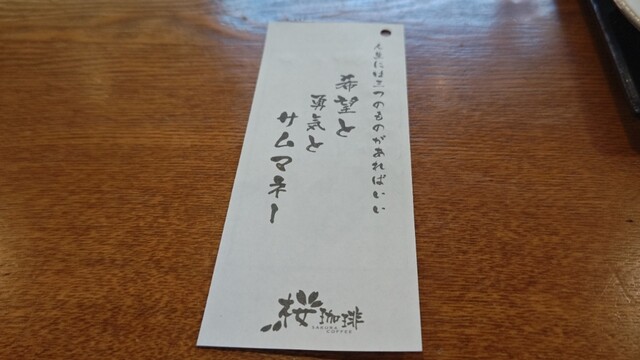 人生には三つのものがあればいい
希望と
勇気と
サムマネー
桜珈琲
SAKURA
COFFEE